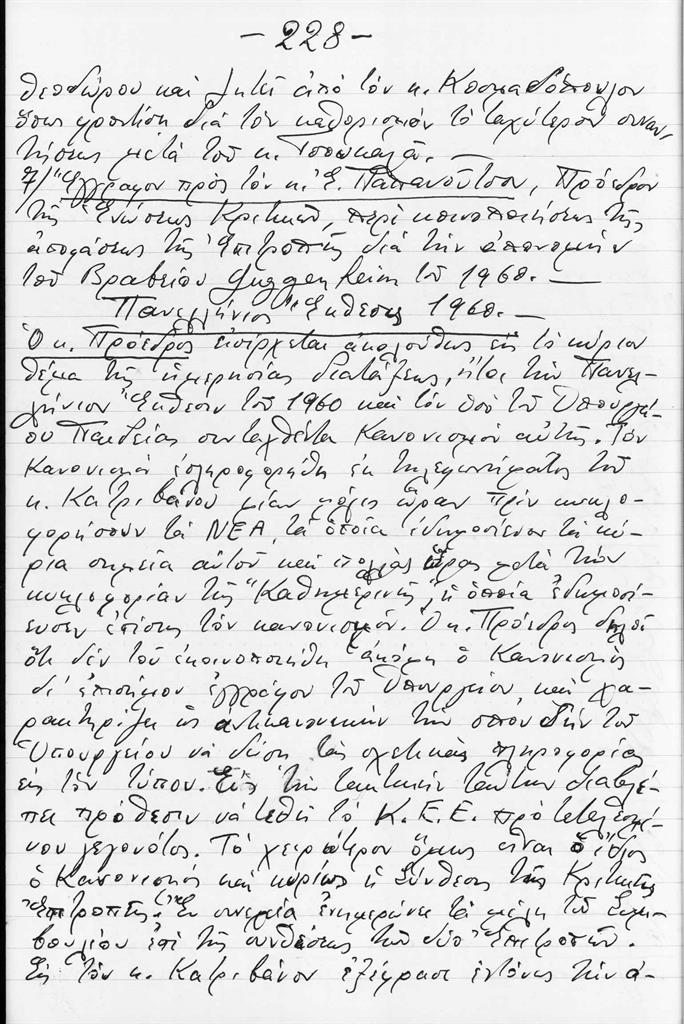 - 228 -
Θεοδώρου καὶ ζητεῖ ἀπό τόν κ. Κοσμαδόπουλον
ὅπως φροντίσῃ διά τόν καθορισμόν τό ταχύτερον συναν-
τήσεως μετά τοῦ κ. Τσουκαλᾶ. —
7/ Ἔγγραφον πρός τόν κ. Ἐ. Παπανοῦτσον, Πρόεδρον
τῆς Ἑνώσεως Κριτικῶν, περί κοινοποιήσεως τῆς
ἀποφάσεως τῆς Ἐπιτροπῆς διά τήν ἀπονομήν
τοῦ Βραβείου Guggenheim τοῦ 1960. —
Πανελλήνιος Ἔκθεσις 1960. —
Ὁ κ. Πρόεδρος εἰσέρχεται ἀκολούθως εἰς τό κύριον
θέμα τῆς ἡμερησίας διατάξεως, ἤτοι τήν Πανελ-
λήνιον Ἔκθεσιν τοῦ 1960 καί τόν ὑπό τοῦ Ὑπουργεί-
ου Παιδείας συνταχθέντα Κανονισμόν αὐτῆς. Τόν
Κανονισμόν ἐπληροφορήθη ἐκ τηλεφωνήματος τοῦ
κ. Κατριβάνου μίαν μόλις ὥραν πρίν κυκλο-
φορήσουν τά ΝΕΑ, τά ὁποῖα ἐδημοσίευσαν τά κύ-
ρια σημεῖα αὐτοῦ καί πολλάς ὥρας μετά τήν
κυκλοφορίαν τῆς "Καθημερινῆς", ἡ ὁποία ἐδημοσί-
ευσεν ἐπίσης τόν κανονισμόν. Ὁ κ. Πρόεδρος δηλοῖ
ὅτι δέν τοῦ ἐκοινοποιήθη ἀκόμη ὁ Κανονισμός
δι' ἐπισήμου ἐγγράφου τοῦ Ὑπουργείου, καί χα-
ρακτηρίζει ὡς ἀντικανονικήν τήν σπουδήν τοῦ
Ὑπουργείου νά δώσῃ τάς σχετικάς πληροφορίας
εἰς τόν τύπον. Εἰς τήν τακτικήν ταύτην διαβλέ-
πει πρόθεσιν νά τεθῇ τό Κ.Ε.Ε. πρό τετελεσμέ-
νου γεγονότος. Τό χειρότερον ὅμως εἶναι ὁ ἴδιος
ὁ Κανονισμός καί κυρίως ἡ Σύνθεσις τῆς Κριτικῆς
Ἐπιτροπῆς. Ἐν συνεχείᾳ ἐνημερώνει τά μέλη τοῦ Συμ-
βουλίου ἐπί τῆς συνθέσεως τῶν δύο Ἐπιτροπῶν.
Εἰς τόν κ. Κατριβάνον ἐξέφρασε ἐντόνως τήν ἀ-